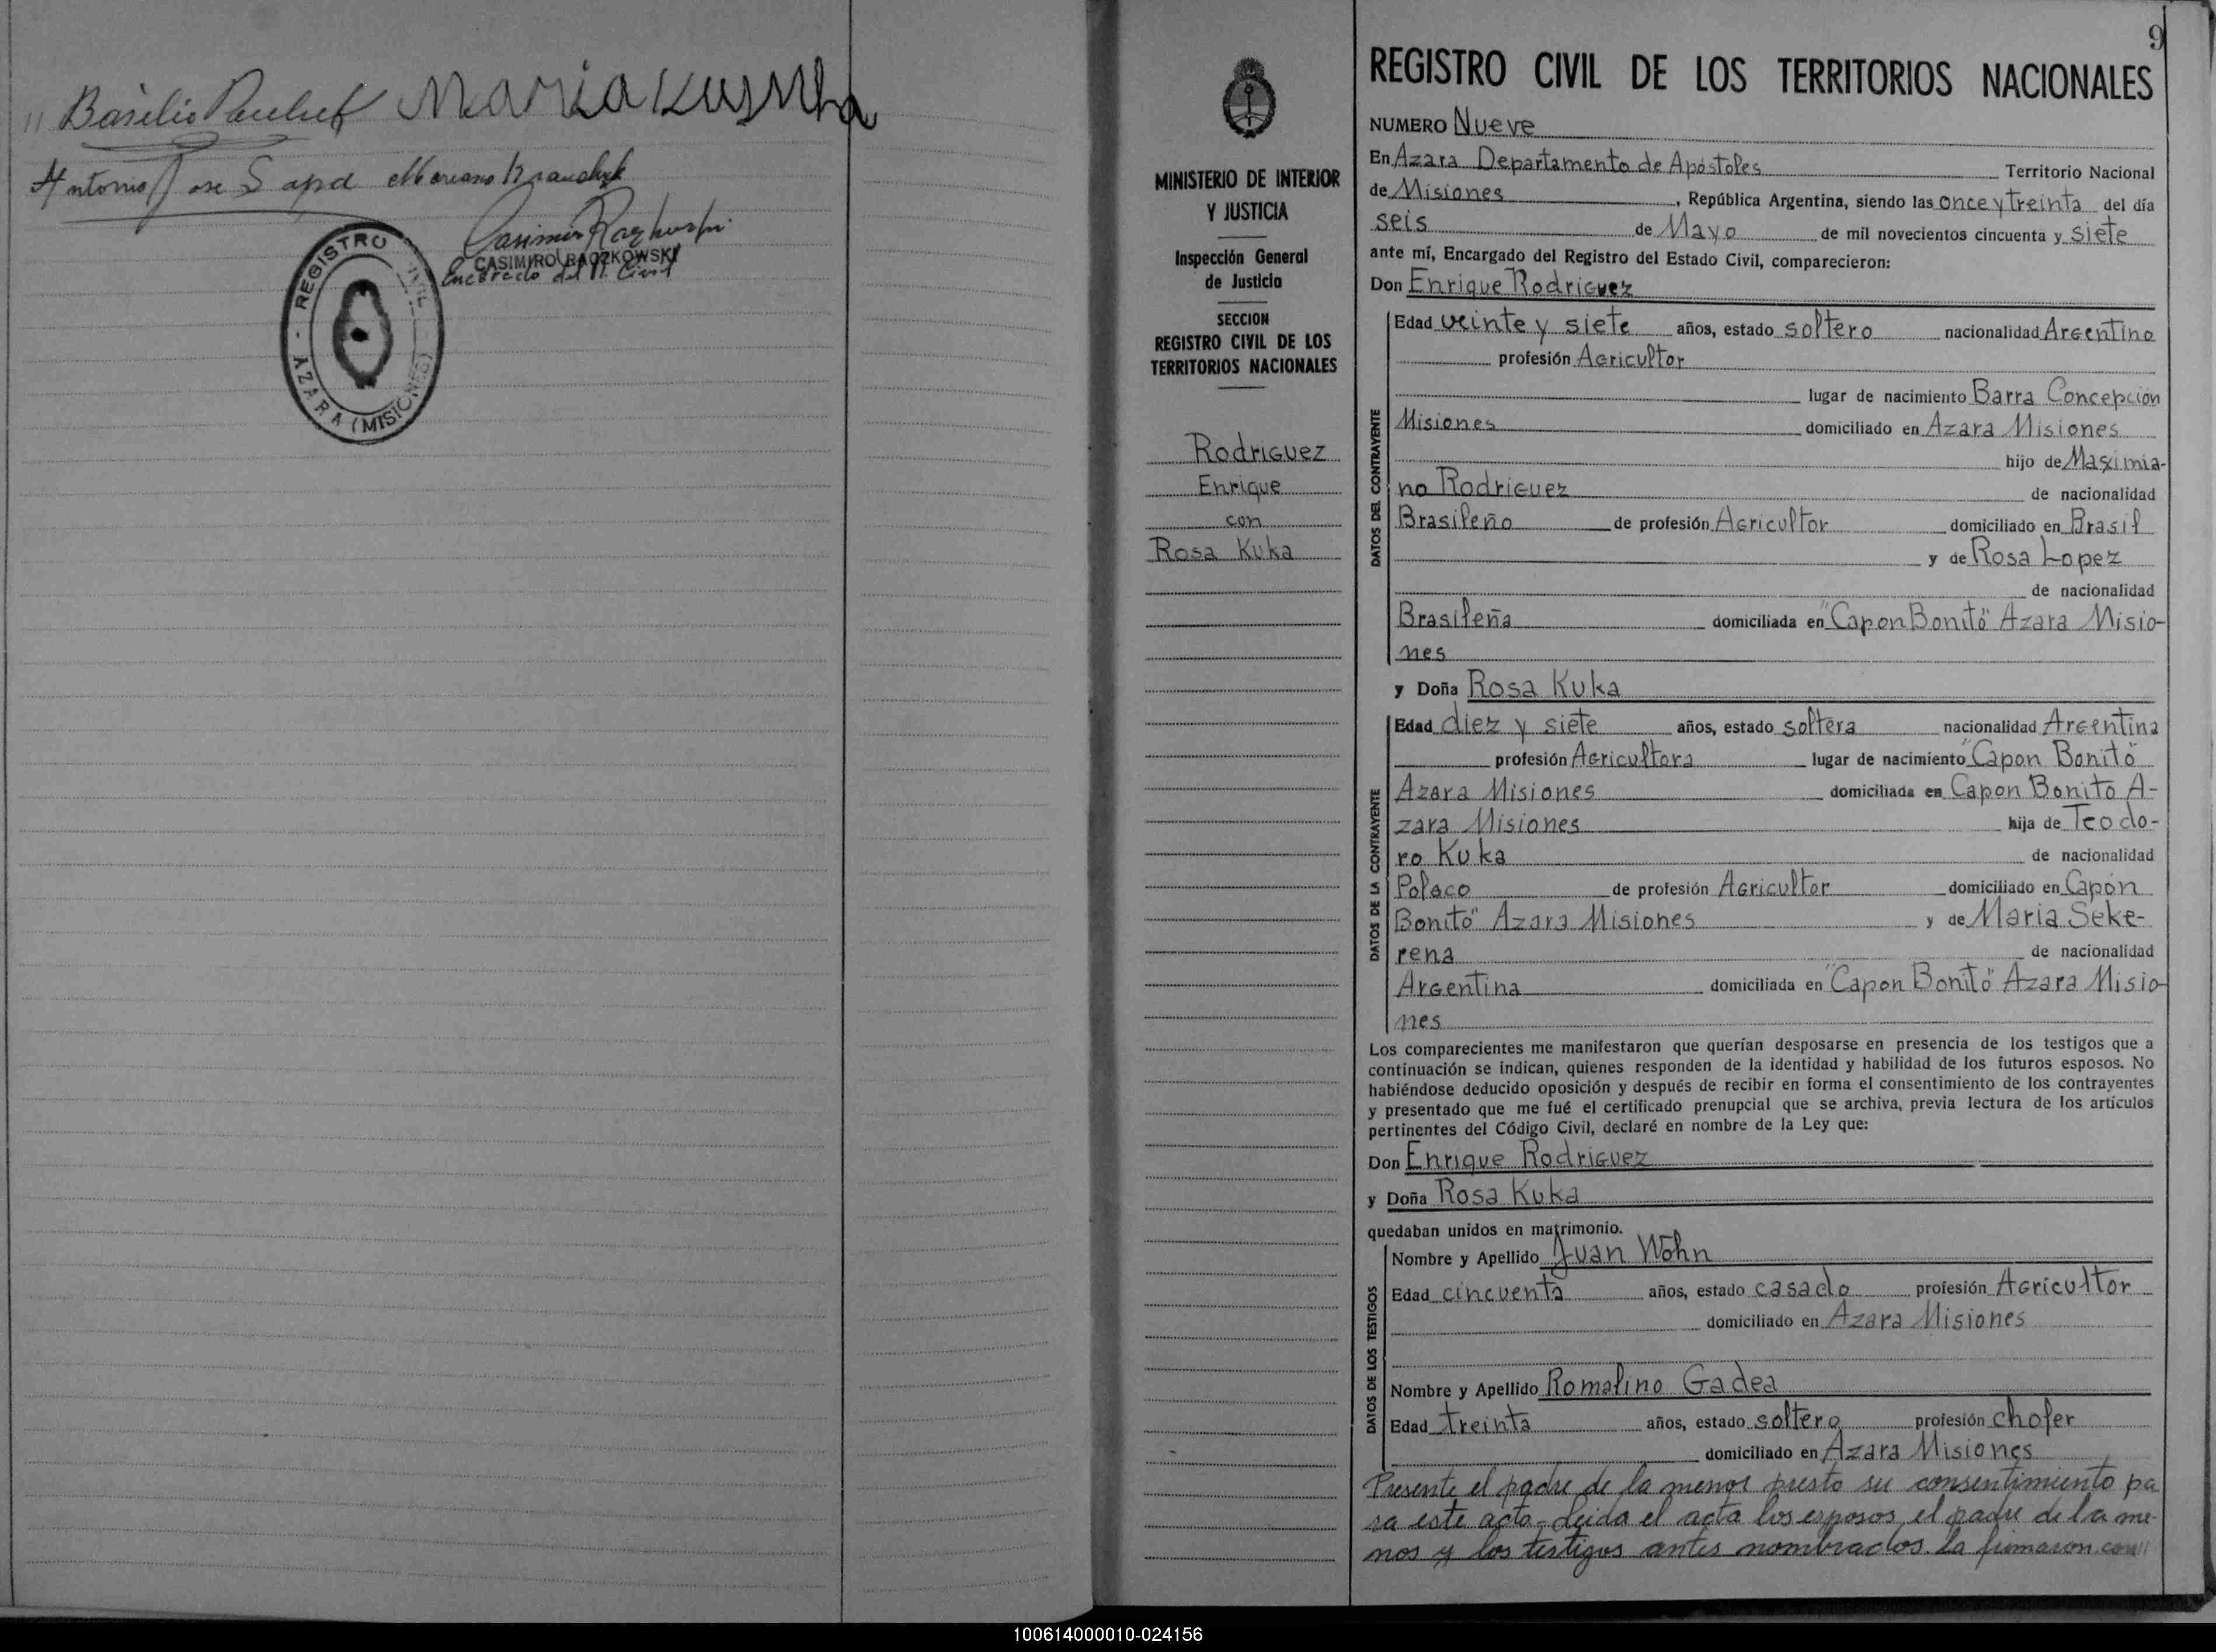 " Basilio Pauluk Maria Kusñha
Antonio Jose Sapa Mariano Krauchuk
Casimiro Raczkowski
CASIMIRO RACZKOWSKI
Encargado del R. Civil
REGISTRO CIVIL - AZARA (MISIONES)
9
MINISTERIO DE INTERIOR
Y JUSTICIA
Inspección General
de Justicia
SECCION
REGISTRO CIVIL DE LOS
TERRITORIOS NACIONALES
Rodriguez
Enrique
con
Rosa Kuka
REGISTRO CIVIL DE LOS TERRITORIOS NACIONALES
NUMERO Nueve
En Azara Departamento de Apóstoles Territorio Nacional
de Misiones, República Argentina, siendo las once y treinta del día
seis de Mayo de mil novecientos cincuenta y siete
ante mí, Encargado del Registro del Estado Civil, comparecieron:
Don Enrique Rodriguez
DATOS DEL CONTRAYENTE
Edad veinte y siete años, estado soltero nacionalidad Argentino
profesión Agricultor
lugar de nacimiento Barra Concepción
Misiones domiciliado en Azara Misiones
hijo de Maximia-
no Rodriguez de nacionalidad
Brasileño de profesión Agricultor domiciliado en Brasil
y de Rosa Lopez
de nacionalidad
Brasileña domiciliada en "Capon Bonito" Azara Misio-
nes
y Doña Rosa Kuka
DATOS DE LA CONTRAYENTE
Edad diez y siete años, estado soltera nacionalidad Argentina
profesión Agricultora lugar de nacimiento "Capon Bonito"
Azara Misiones domiciliada en Capon Bonito A-
zara Misiones hija de Teodo-
ro Kuka de nacionalidad
Polaco de profesión Agricultor domiciliado en Capón
Bonito" Azara Misiones y de Maria Seke-
rena de nacionalidad
Argentina domiciliada en "Capon Bonito" Azara Misio-
nes
Los comparecientes me manifestaron que querían desposarse en presencia de los testigos que a
continuación se indican, quienes responden de la identidad y habilidad de los futuros esposos. No
habiéndose deducido oposición y después de recibir en forma el consentimiento de los contrayentes
y presentado que me fué el certificado prenupcial que se archiva, previa lectura de los artículos
pertinentes del Código Civil, declaré en nombre de la Ley que:
Don Enrique Rodriguez
y Doña Rosa Kuka
quedaban unidos en matrimonio.
DATOS DE LOS TESTIGOS
Nombre y Apellido Juan Wohn
Edad cincuenta años, estado casado profesión Agricultor
domiciliado en Azara Misiones
Nombre y Apellido Romalino Gadea
Edad treinta años, estado soltero profesión chofer
domiciliado en Azara Misiones
Presente el padre de la menor presto su consentimiento pa
ra este acto - Leida el acta los esposos, el padre de la me-
nor y los testigos antes nombrados la firmaron con//
100614000010-024156